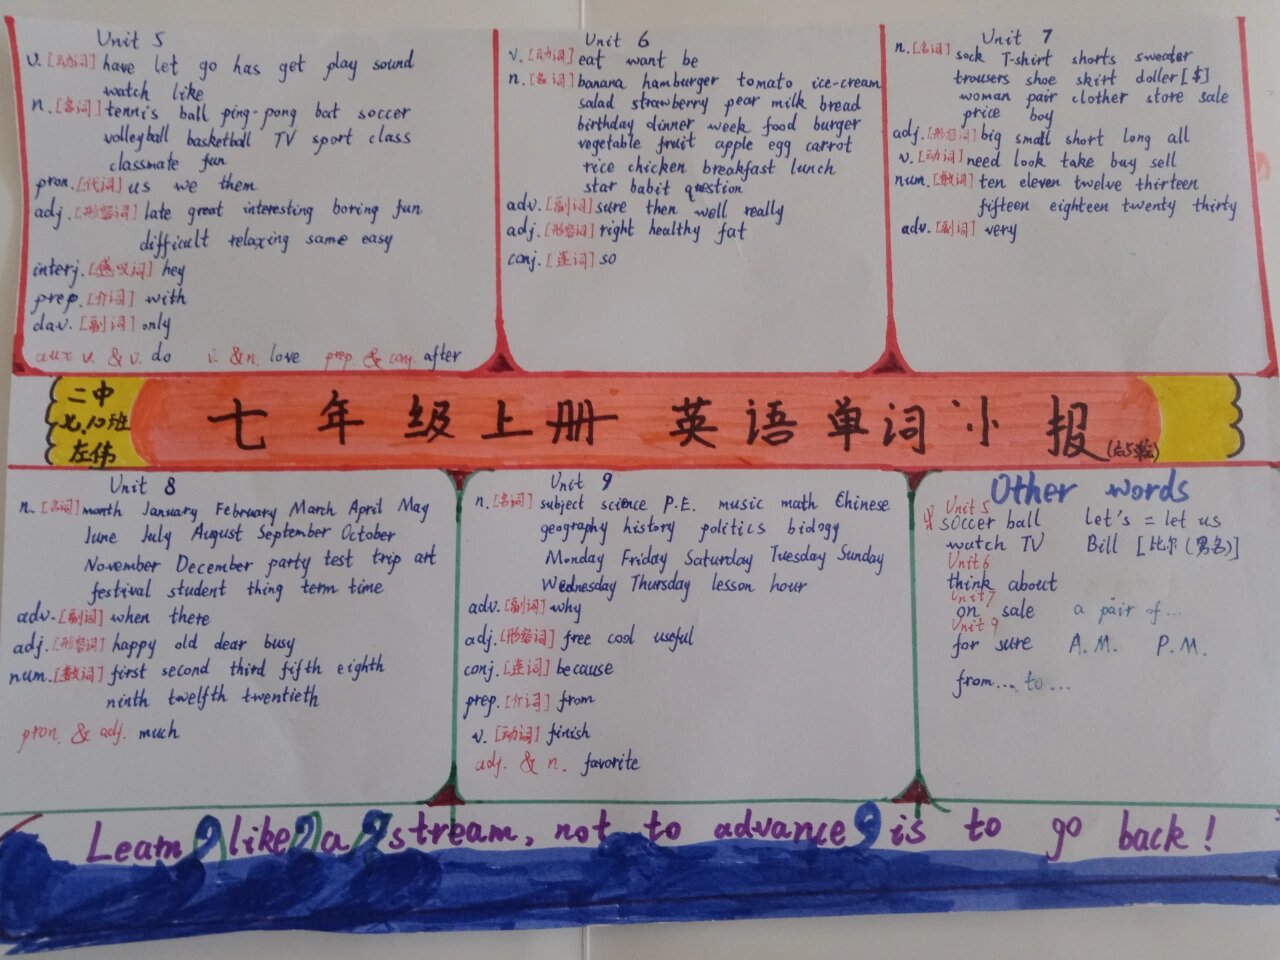 Unit 5
v.[动词] have let go has get play sound
watch like
n.[名词] tennis ball ping-pong bat soccer
volleyball basketball TV sport class
classmate fun
pron.[代词] us we them
adj.[形容词] late great interesting boring fun
difficult relaxing same easy
interj.[感叹词] hey
prep.[介词] with
dav.[副词] only
aux v. & v. do v. & n. love prep. & conj. after
Unit 6
v.[动词] eat want be
n.[名词] banana hamburger tomato ice-cream
salad strawberry pear milk bread
birthday dinner week food burger
vegetable fruit apple egg carrot
rice chicken breakfast lunch
star babit question
adv.[副词] sure then well really
adj.[形容词] right healthy fat
conj.[连词] so
Unit 7
n.[名词] sock T-shirt shorts sweater
trousers shoe skirt doller[$]
woman pair clother store sale
price boy
adj.[形容词] big small short long all
v.[动词] need look take buy sell
num.[数词] ten eleven twelve thirteen
fifteen eighteen twenty thirty
adv.[副词] very
二中
七.10班
左伟
七年级上册 英语单词小报
Unit 8
n.[名词] month January February March April May
June July August September October
November December party test trip art
festival student thing term time
adv.[副词] when there
adj.[形容词] happy old dear busy
num.[数词] first second third fifth eighth
ninth twelfth twentieth
pron. & adj. much
Unit 9
n.[名词] subject science P.E. music math Chinese
geography history politics biology
Monday Friday Saturday Tuesday Sunday
Wednesday Thursday lesson hour
adv.[副词] why
adj.[形容词] free cool useful
conj.[连词] because
prep.[介词] from
v.[动词] finish
adj. & n. favorite
Other words
Unit 5
soccer ball Let's = let us
watch TV Bill [比尔(男名)]
Unit 6
think about
Unit 7
on sale a pair of...
Unit 9
for sure A.M. P.M.
from... to...
Learn like a stream, not to advance is to go back!